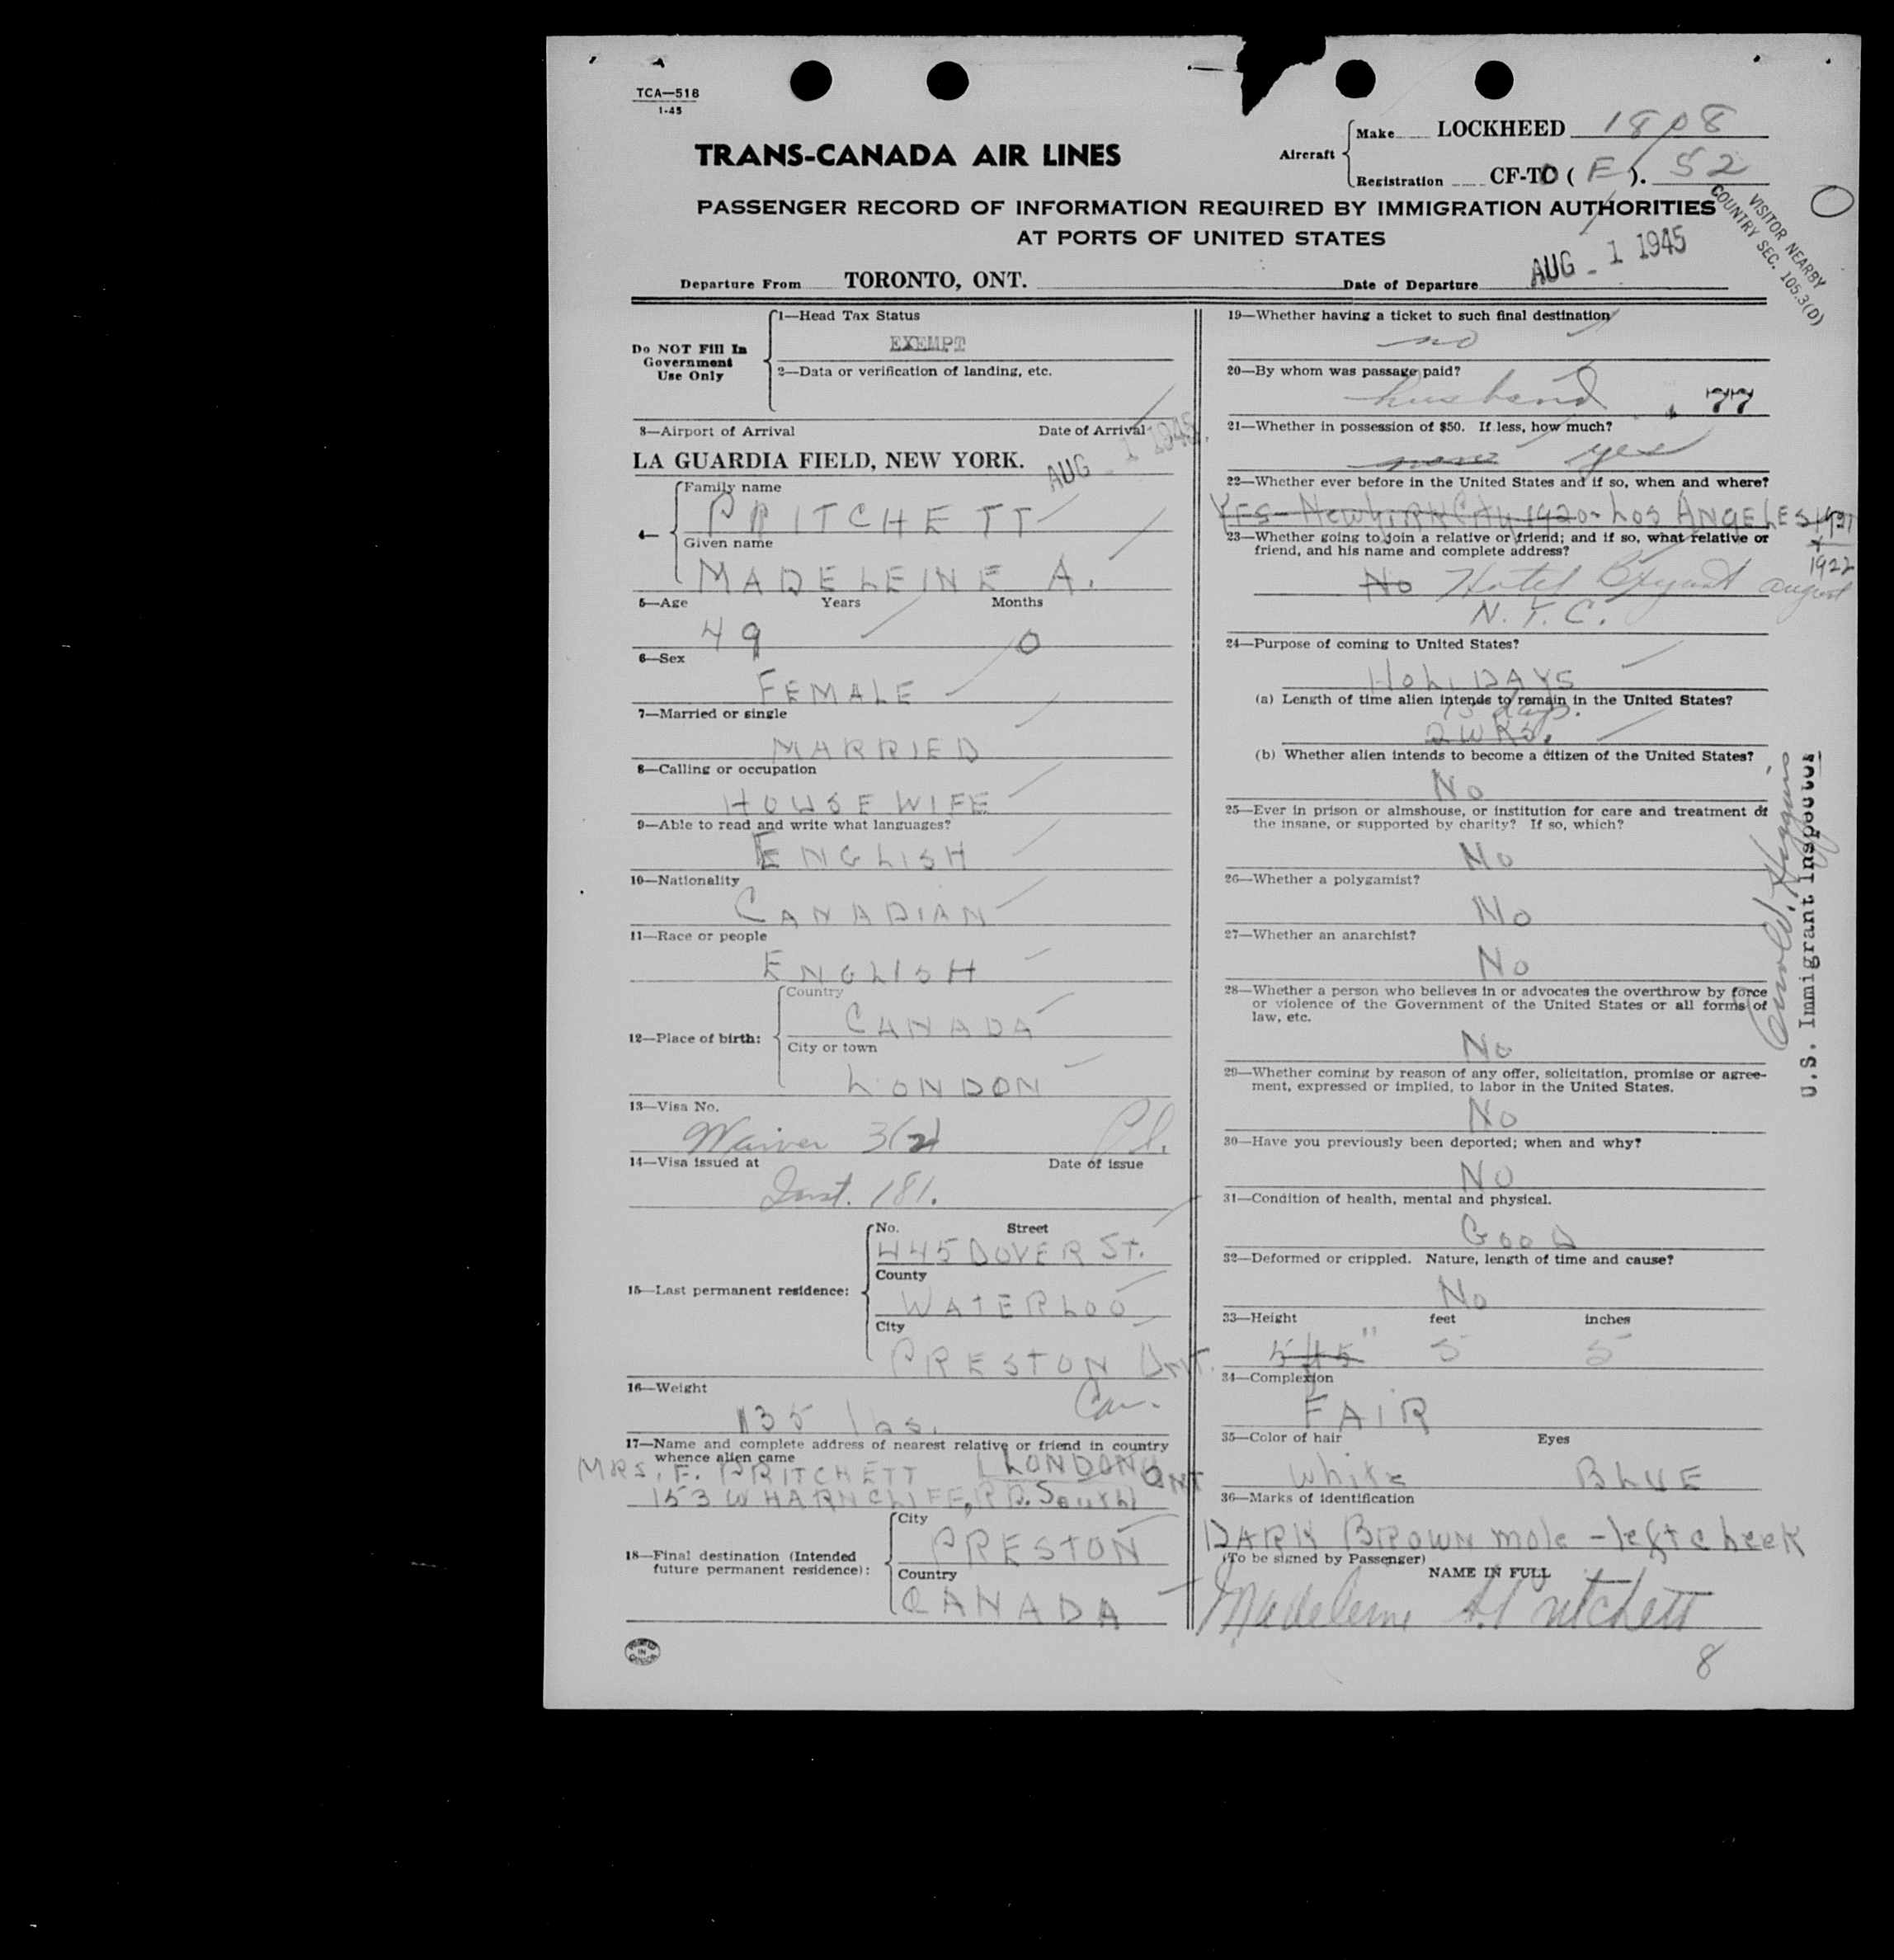 TCA—518
1-45
TRANS-CANADA AIR LINES
Aircraft
Make LOCKHEED 1808
Registration CF-TC ( E ). 52
PASSENGER RECORD OF INFORMATION REQUIRED BY IMMIGRATION AUTHORITIES
AT PORTS OF UNITED STATES
VISITOR NEARBY
COUNTRY SEC. 105.3(D)
Departure From TORONTO, ONT. Date of Departure AUG - 1 1945
Do NOT Fill In
Government
Use Only
1—Head Tax Status
EXEMPT
2—Data or verification of landing, etc.
3—Airport of Arrival Date of Arrival
LA GUARDIA FIELD, NEW YORK. AUG - 1 1945
4—
Family name
PRITCHETT
Given name
MADELEINE A.
5—Age Years Months
49 0
6—Sex
FEMALE
7—Married or single
MARRIED
8—Calling or occupation
HOUSEWIFE
9—Able to read and write what languages?
ENGLISH
10—Nationality
CANADIAN
11—Race or people
ENGLISH
12—Place of birth:
Country
CANADA
City or town
LONDON
13—Visa No.
Waiver 3(2)
14—Visa issued at Date of issue
Inst. 181.
15—Last permanent residence:
No. Street
445 DOVER ST.
County
WATERLOO
City
PRESTON ONT.
Can.
16—Weight
135 lbs.
17—Name and complete address of nearest relative or friend in country
whence alien came
MRS. F. PRITCHETT LONDON ONT
153 WHARNCLIFE, RD. South
18—Final destination (Intended
future permanent residence):
City
PRESTON
Country
CANADA
19—Whether having a ticket to such final destination
no
20—By whom was passage paid?
husband 77
21—Whether in possession of $50. If less, how much?
none yes
22—Whether ever before in the United States and if so, when and where?
YES - New York City 1920 - LOS ANGELES 1921
+
1922
23—Whether going to join a relative or friend; and if so, what relative or
friend, and his name and complete address?
No Hotel Bryant august
N.Y.C.
24—Purpose of coming to United States?
HOLIDAYS
(a) Length of time alien intends to remain in the United States?
15 days.
2 WKS.
(b) Whether alien intends to become a citizen of the United States?
No
25—Ever in prison or almshouse, or institution for care and treatment of
the insane, or supported by charity? If so, which?
No
26—Whether a polygamist?
No
27—Whether an anarchist?
No
28—Whether a person who believes in or advocates the overthrow by force
or violence of the Government of the United States or all forms of
law, etc.
No
29—Whether coming by reason of any offer, solicitation, promise or agree-
ment, expressed or implied, to labor in the United States.
No
30—Have you previously been deported; when and why?
NO
31—Condition of health, mental and physical.
GOOD
32—Deformed or crippled. Nature, length of time and cause?
No
33—Height feet inches
5 5
34—Complexion
FAIR
35—Color of hair Eyes
White BLUE
36—Marks of identification
DARK BROWN mole - left cheek
(To be signed by Passenger)
NAME IN FULL
Madeleine A. Pritchett
8
U.S. Immigrant Inspector
PRINTED
IN
CANADA